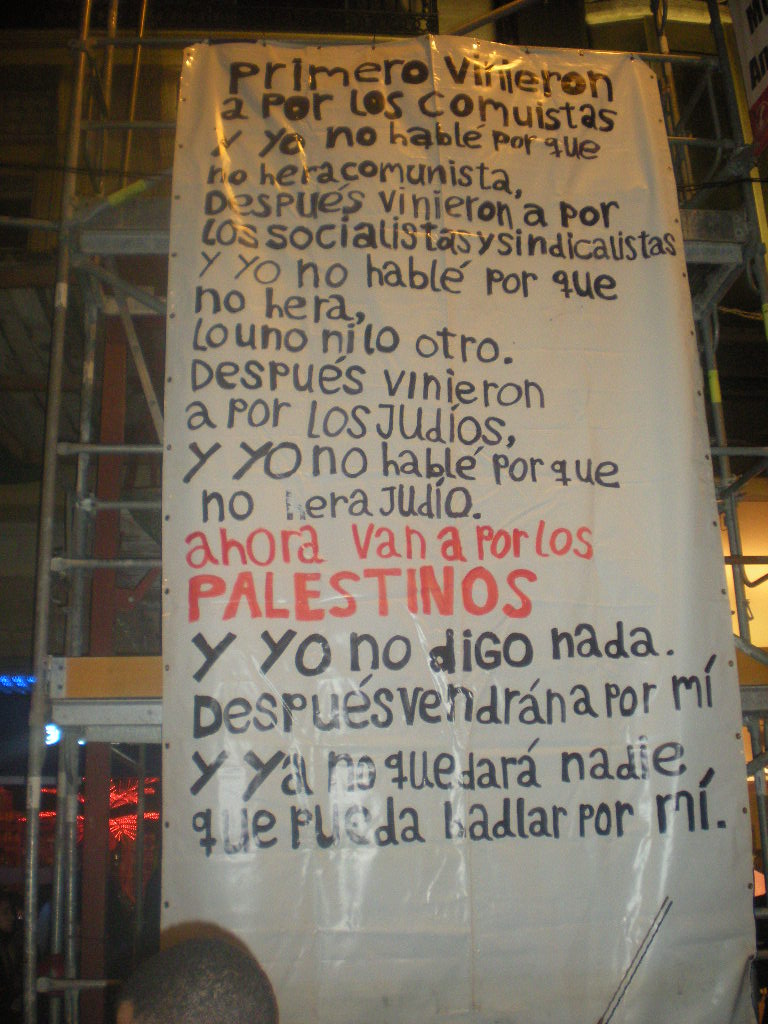 Primero vinieron
a por los comuistas
y yo no hablé por que
no hera comunista,
Después vinieron a por
los socialistas y sindicalistas
y yo no hablé por que
no hera,
lo uno ni lo otro.
Después vinieron
a por los judíos,
y yo no hablé por que
no hera judío.
ahora van a por los
PALESTINOS
y yo no digo nada.
Después vendrán a por mí
y ya no quedará nadie
que pueda hadlar por mí.